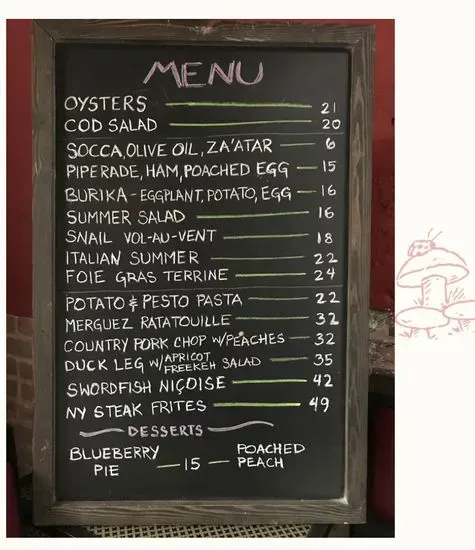 MENU
OYSTERS 21
COD SALAD 20
SOCCA, OLIVE OIL, ZA'ATAR 6
PIPERADE, HAM, POACHED EGG 15
BURIKA - EGGPLANT, POTATO, EGG 16
SUMMER SALAD 16
SNAIL VOL-AU-VENT 18
ITALIAN SUMMER 22
FOIE GRAS TERRINE 24
POTATO & PESTO PASTA 22
MERGUEZ RATATOUILLE 32
COUNTRY PORK CHOP W/PEACHES 32
DUCK LEG W/APRICOT FREEKEH SALAD 35
SWORDFISH NIÇOISE 42
NY STEAK FRITES 49
DESSERTS
BLUEBERRY PIE - 15 - POACHED PEACH